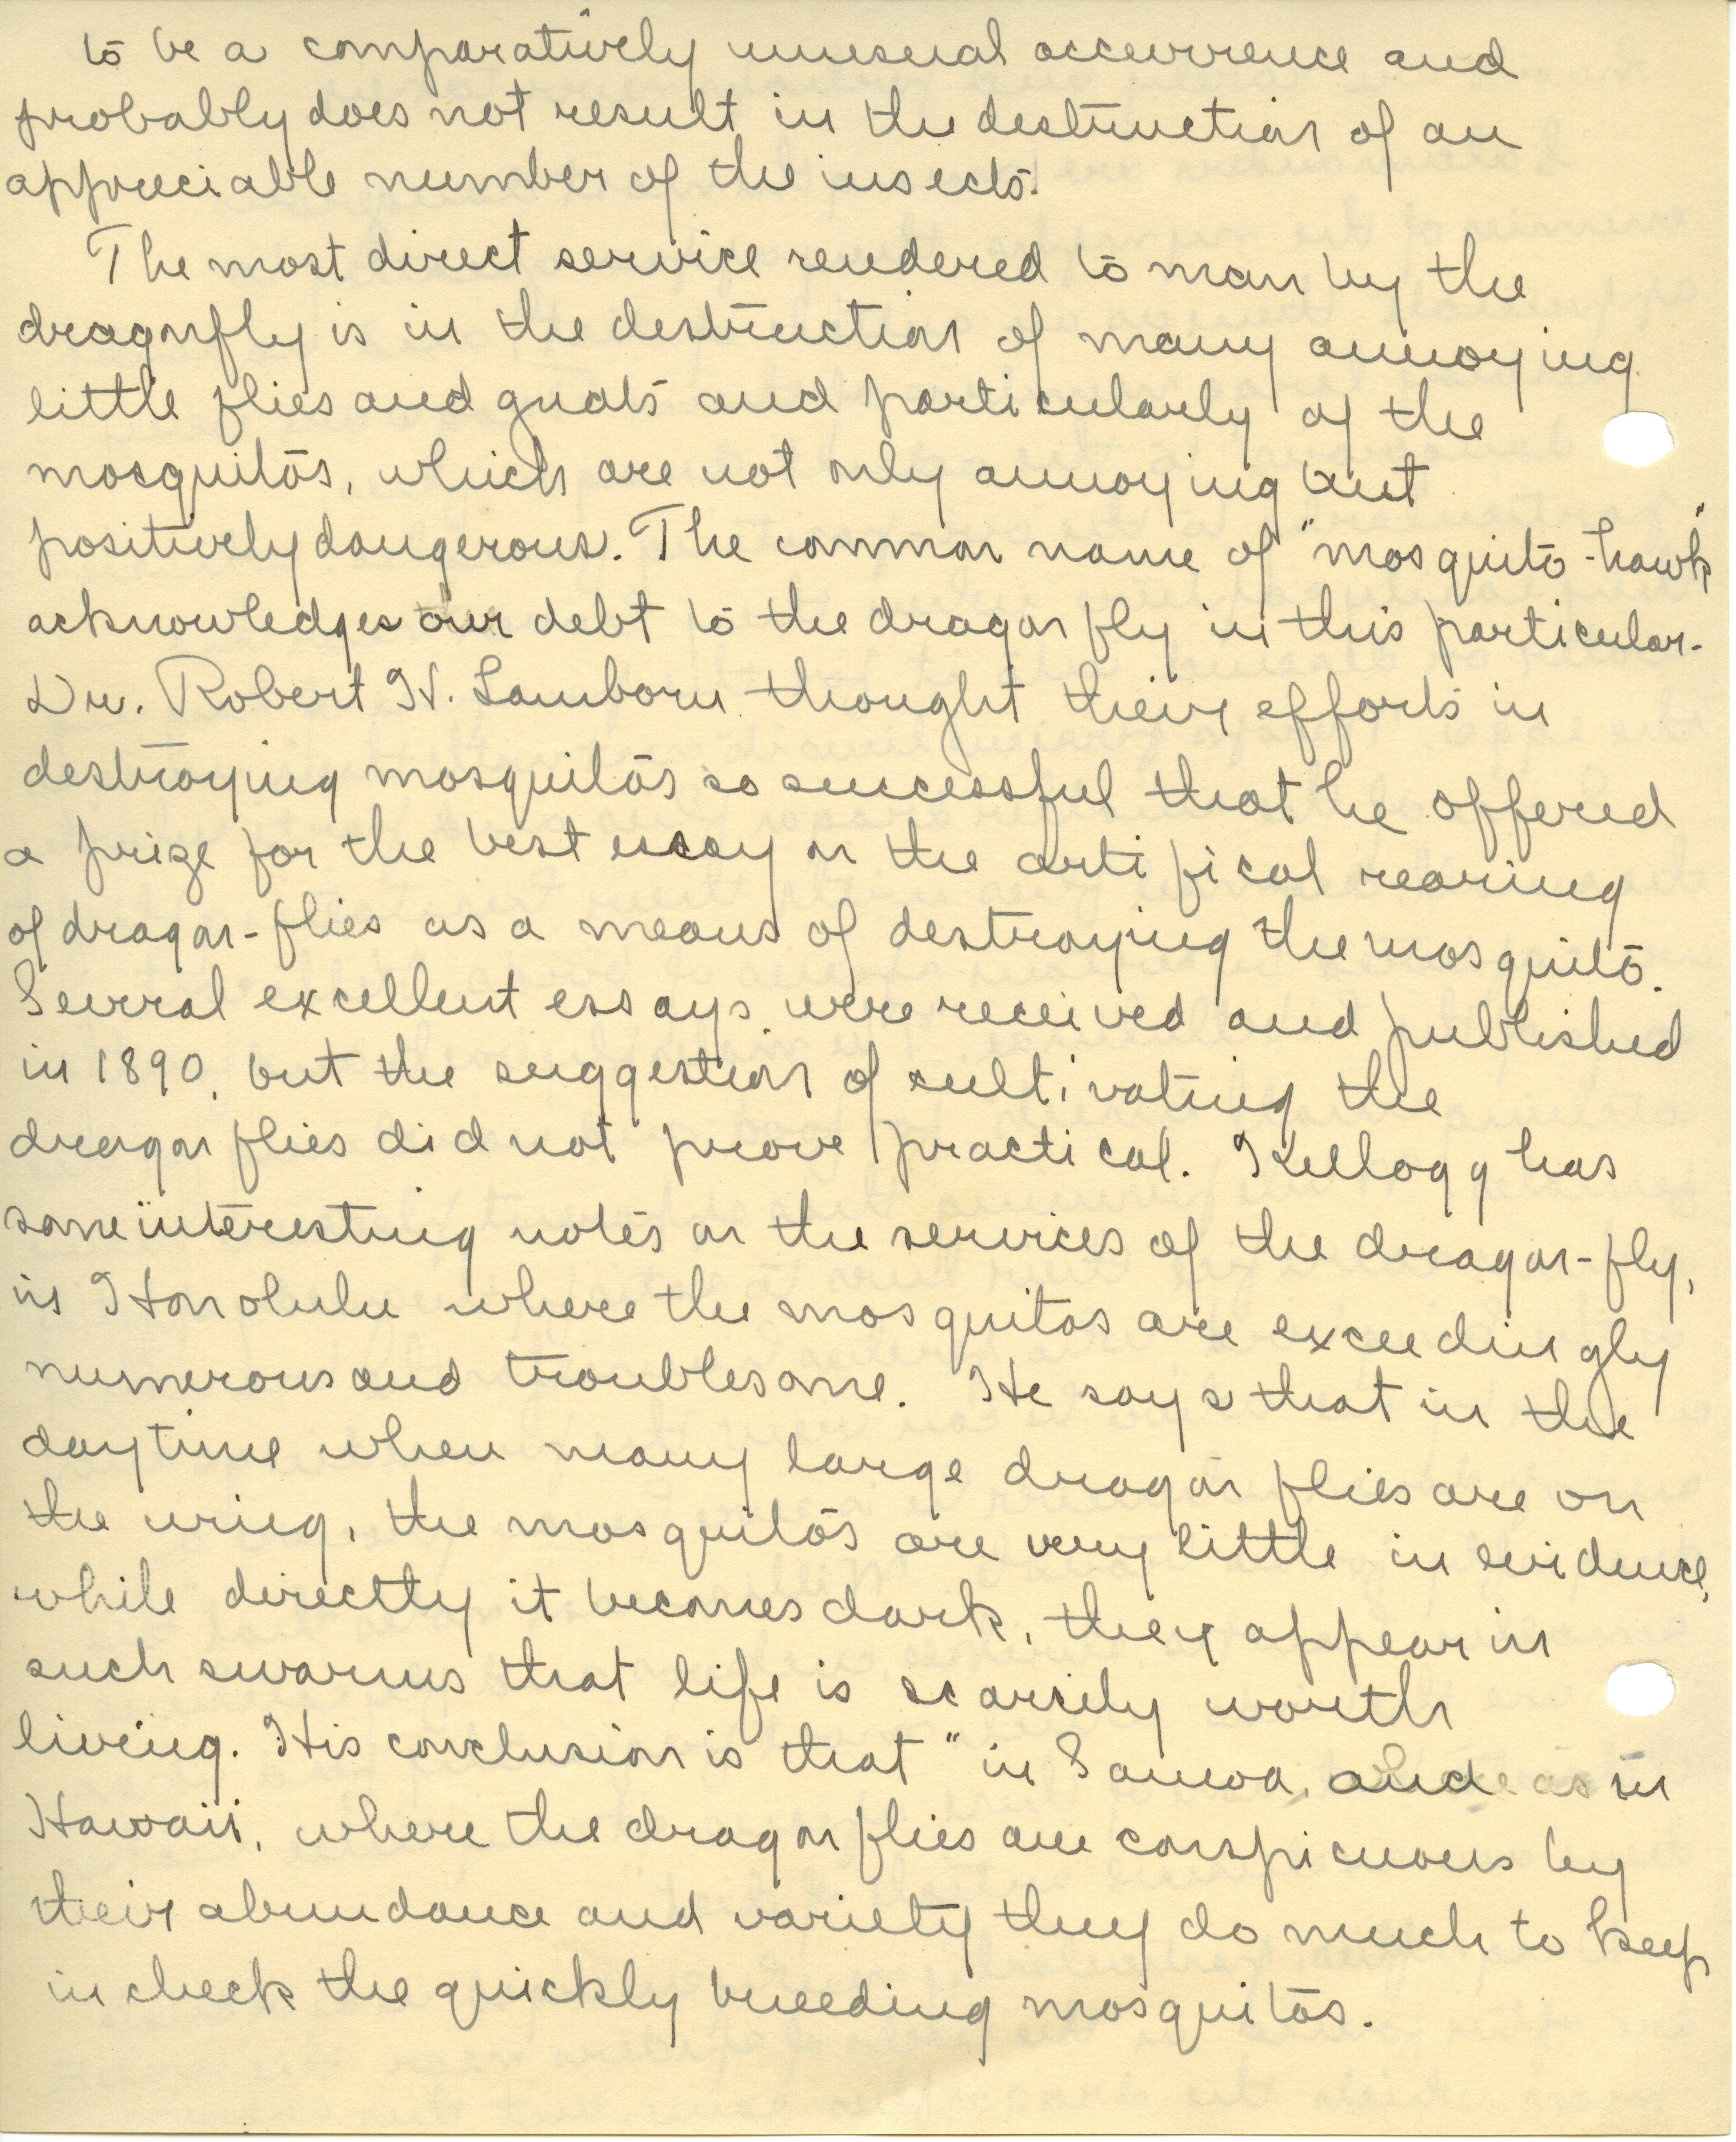 to be a comparatively unusual occurrence and
probably does not result in the destruction of an
appreciable number of the insects.
The most direct service rendered to man by the
dragonfly is in the destruction of many annoying
little flies and gnats and particularly of the
mosquitos, which are not only annoying but
positively dangerous. The common name of "mosquito-hawk"
acknowledges our debt to the dragon fly in this particular.
Dr. Robert H. Lamborn thought their efforts in
destroying mosquitos so successful that he offered
a prize for the best essay on the artifical rearing
of dragon-flies as a means of destroying the mosquito.
Several excellent essays were received and published
in 1890, but the suggestion of cultivating the
dragon flies did not prove practical. Kellogg has
some interesting notes on the services of the dragon-fly,
in Honolulu where the mosquitos are exceedingly
numerous and troublesome. He says that in the
daytime when many large dragon flies are on
the wing, the mosquitos are very little in evidence,
while directly it becomes dark, they appear in
such swarms that life is scarcely worth
living. His conclusion is that "in Samoa, and as in
Hawaii, where the dragon flies are conspicuous by
their abundance and variety they do much to keep
in check the quickly breeding mosquitos.